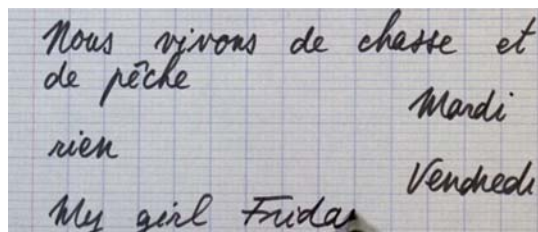 Nous vivons de chasse et
de pêche
Mardi
rien
Vendredi
My girl Friday